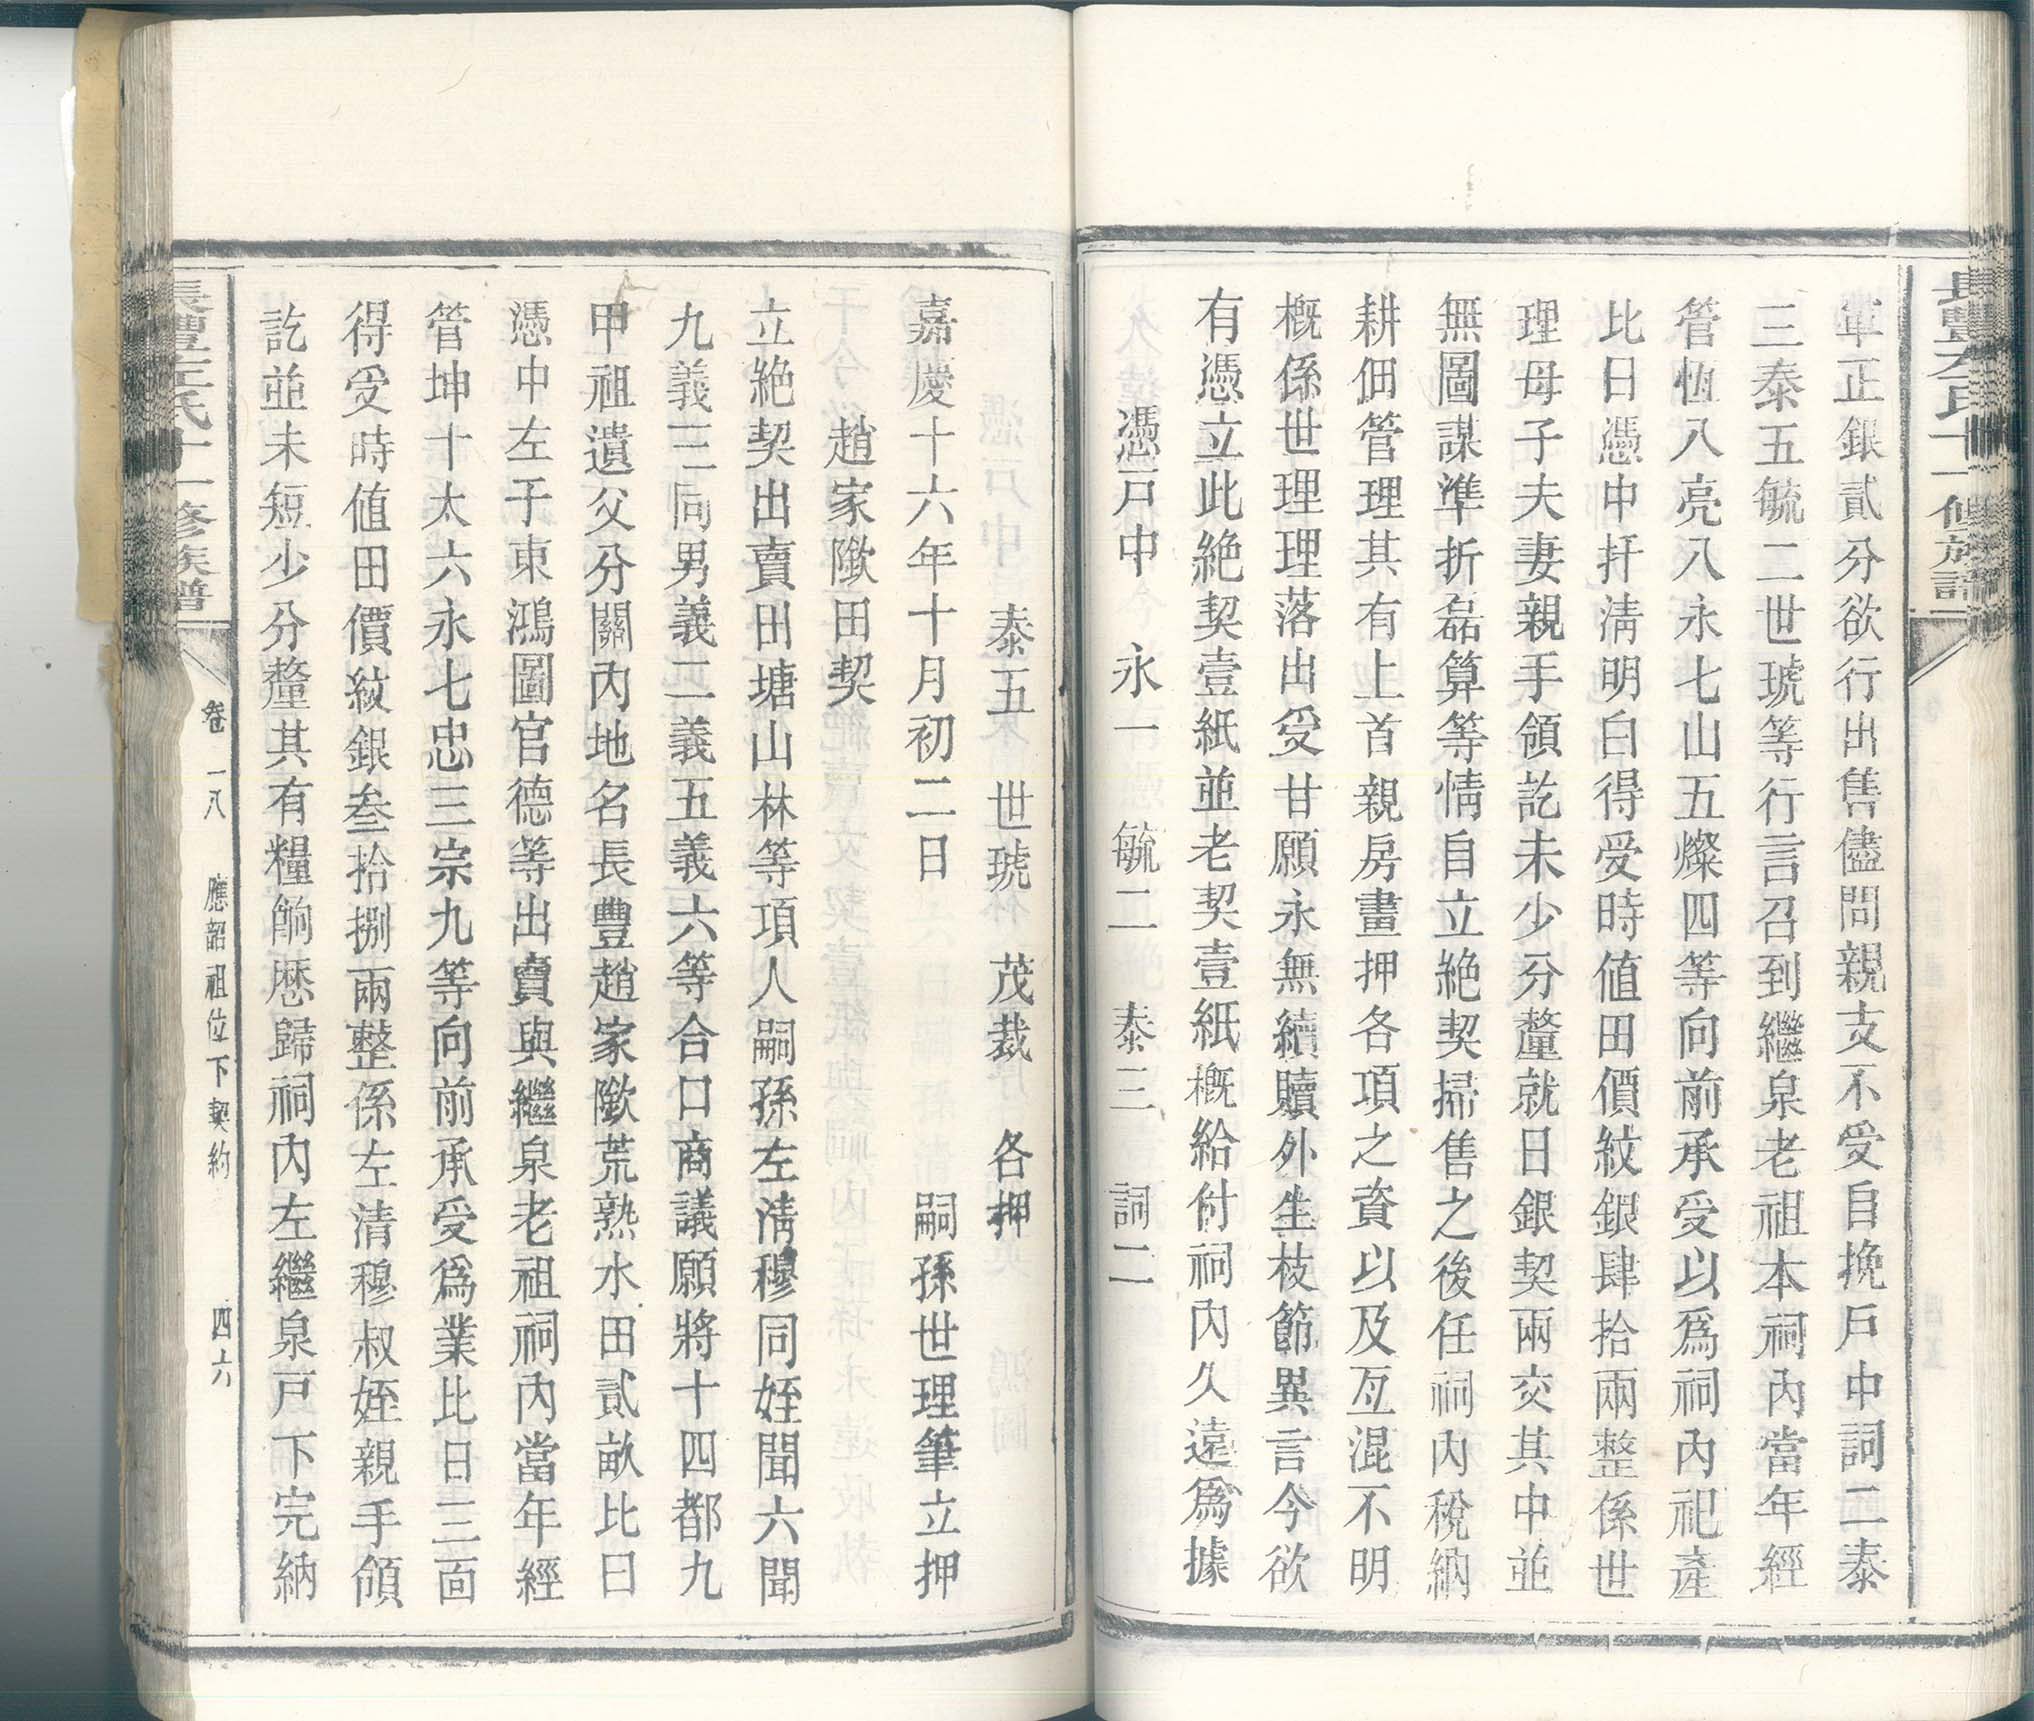 長豐左氏十一修族譜
單正銀貳分欲行出售儘問親支不受自挽戶中詞二泰
三泰五毓二世琥等行言召到繼泉老祖本祠內當年經
管恆八亮八永七山五燦四等向前承受以爲祠內祀產
比日憑中扞清明白得受時値田價紋銀肆拾兩整係世
理母子夫妻親手領訖未少分釐就日銀契兩交其中並
無圖謀準折磊算等情自立絶契掃售之後任祠內稅納
耕佃管理其有上首親房畫押各項之資以及互混不明
槪係世理理落出受甘願永無續贖外生枝節異言今欲
有憑立此絶契壹紙並老契壹紙槪給付祠內久遠爲據
憑戶中　永一　毓二　泰三　詞二
泰五　世琥　茂裁　各押
嘉慶十六年十月初二日　嗣孫世理筆立押
趙家隞田契
立絶契出賣田塘山林等項人嗣孫左淸穆同姪聞六聞
九義三同男義二義五義六等合口商議願將十四都九
甲祖遺父分關內地名長豐趙家隞荒熟水田貳畝比日
憑中左于東鴻圖官德等出賣與繼泉老祖祠內當年經
管坤十太六永七忠三宗九等向前承受爲業比日三面
得受時值田價紋銀叁拾捌兩整係左清穆叔姪親手領
訖並未短少分釐其有糧餉歷歸祠內左繼泉戶下完納
長豐左氏十一修族譜
卷一八　應韶祖位下契約　四六